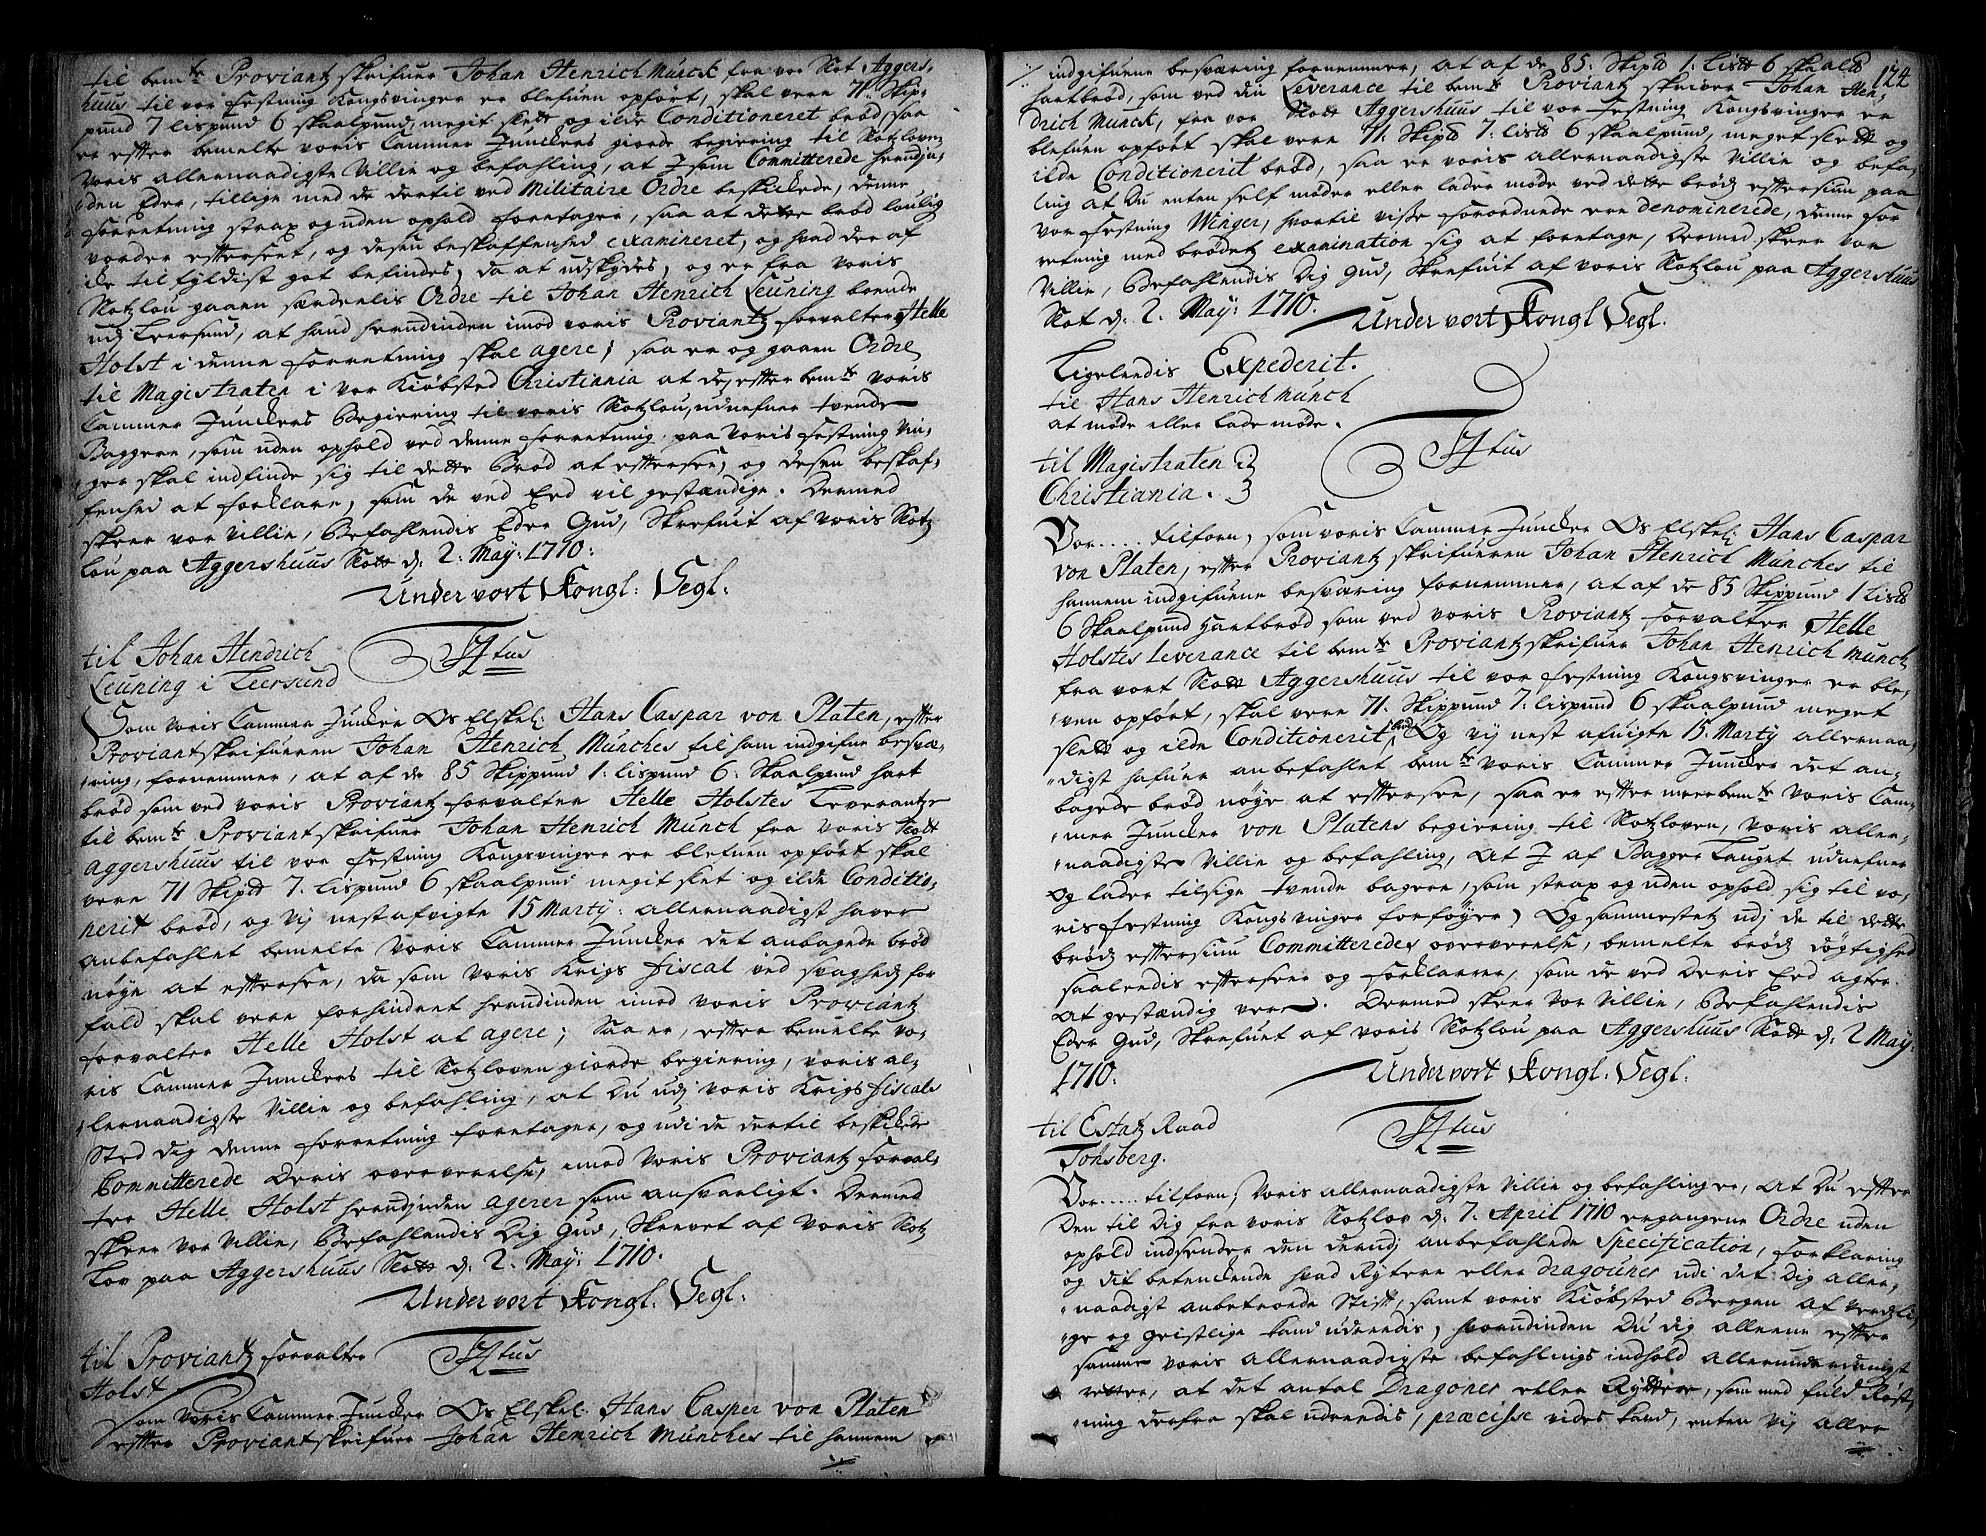 til bemte Proviantz skrifuer Johan Henrich Munck fra vor Slot Aggers-
huus til vor festning Kongsvinger er blefuen opført, skal vere 71. Skip-
pund 7 lispund 6 skaalpund, megit slett og ilde Conditioneret brød, saa
er effter bemelte voris Cammer Junckers giorde begiering til Slotzloven
Voris allernaadigste Villie og befahling, at I som Committerede herudjn-
den Eder, tillige med de dertil ved Militaire Ordre beskickede, denne
forretning strax og uden ophold foretager, saa at dette brød loulig
vorder effterseet, og desen beskaffenhed examineret, og hvad der af
icke tilfyldist got befindes, da at udskydes, og er fra voris
Slotzlou gaaen særdenlis Ordre til Johan Henrich Leuning boende
udj Leersund, at hand herudinden imod voris Proviantz forvalter Helle
Holst i denne forretning skal agere; saa er og gaaen Ordre
til Magistraten i vor Kiøbsted Christiania at de, effter bemte voris
Cammer Junckers Begiering til voris Slotzlou, udnefner tvende
Baggere, som uden ophold ved denne forretning paa voris festning Vin-
ger skal indfinde sig til dette Brød at effterse, og desen beskaf-
fenhed at forklare, som de ved Eed vil gestændige. Dermed
skeer vor Villie, Befahlendis Eder Gud, Skrefuit af voris Slotz
lou paa Aggershuus Slott d: 2. May: 1710:
Under vort Kongl: Segl:
til Johan Hendrich
Leuning i Leersund
Htus
Som voris Cammer Juncker Os Elskel: Hans Caspar von Platen, effter
Proviantskrifueren Johan Henrich Münches til ham indgifne besvæ-
ring, fornemmer, at af de 85 Skippund 1: lispund 6: Skaalpund hart
brød som ved voris Proviantz forvalter Helle Holstes Leverantze
til bemte Proviantskrifuer Johan Henrich Münch fra voris Slott
Aggershuus til vor festning Kongsvinger er blefuen opført skal
vere 71 Skipd 7. lispund 6 skaalpund megit slet og ilde Conditio-
nerit brød, og Vij nestafvigte 15 Marty: allernaadigst haver
anbefahlet bemelte voris Cammer Juncker det anbagede brød
nøye at effterse, da som voris Krigs fiscal ved svagheds for
fald skal vere forhindret herudinden imod voris Proviantz
forvalter Helle Holst at agere; Saa er, effter bemelte vo-
ris Cammer Junckers til Slotzloven giorde begiering, voris al-
lernaadigste Villie og befahling, at Du udj voris Krigsfiscals
Sted dig denne forretning foretager, og udi de dertil beskickede
Committerede Deris oververelse, imod voris Proviantz forval-
ter Helle Holst herudjnden agerer som ansvarligt. Dermed
skeer vor Villie, Befahlendis Dig Gud, Skrevet af Voris Slotz
Lov paa Aggershuus Slott d: 2. May: 1710.
Under vort Kongl: Segl:
til Proviantz forvalter
Holst
Htus
Som voris Cammer Juncker Os Elskel: Hans Casper von Platen
effter Proviantskrifuer Johan Henrich Münches til hannem
174
indgifuene besværing fornemmer, at af de 85. Skipd 1. lisd 6 skaald
hartbrød, som ved din Leverance til bemte Proviantz skriver Johan Hen-
drich Munck, fra vor Slott Aggershuus til vor festning Kongsvinger er
blefuen opført skal vere 71. Skipd 7: lisd 6 skaalpund, meget slett og
ilde Conditioneret brød, saa er voris allernaadigste Villie og befa-
ling at Du enten self møder eller lader møde ved dette brødz effterseun paa
vor festning Winger, hvortil visse forordnede ere denominerede, denne for
retning med brødetz examination sig at foretage, Dermed skeer vor
Villie, Befahlendis Dig Gud, Skrefuit af voris Slotzlou paa Aggershuus
Slot d: 2. May: 1710.
Under vort Kongl Segl.
Ligelendis Expederit.
til Hans Henrich Münch
at møde eller lade møde.
til Magistraten i
Christiania.
Htus
Vor..... tilforn, som voris Cammer Juncker Os Elskel: Hans Caspar
von Platen, effter Proviantz skrifueren Johan Henrich Münches til
hannem indgifuene besværing fornemmer, at af de 85 Skippund 1 lisd
6 Skaalpund hartbrød som ved voris Proviantz forvalter Helle
Holstes Leverance til bemte Proviantskrifuer Johan Henrich Munck
fra vort Slott Aggershuus til vor festning Kongsvinger er ble-
ven opført, skal vere 71. Skippund 7: lispund 6 skaalpund meget
slett og ilde Conditionerit brød, Og vij nest afuigte 15. Marty allernaa-
digst hafuer anbefahlet bemte voris Cammer Juncker det an-
bagede brød nøye at effterse, saa er effter meerbemte voris Cam-
mer Juncker von Platens begiering til Slotzloven, voris aller-
naadigste Villie og befahling, At I af Bagger Lauget udnefner
Og lader tilsige tvende bagere, som strax og uden ophold sig til vo-
ris festning Kongsvinger forføyer, Og sammestetz udj de til dette
brødz effterseun Committeredes oververelse, bemelte brødz døgtighed
saaledis effterseer og forklarer, som de ved Deris Eed agter
At gestændig vere. Dermed skeer vor Villie, Befahlendis
Eder Gud, Skrefuet af voris Slotzlou paa Aggershuus Slott d: 2 May:
1710.
Under vort Kongl: Segl:
til Estatz Raad
Tonsberg.
Htus
Vor..... tilforn, voris allernaadigste Villie og befahling er, At Du effter
Den til Dig fra voris Slotzlov d: 7. April 1710 ergangene Ordre uden
ophold indsender den derudj anbefahlede Specification, forklaring
og dit betenckende hvad Rytere eller dragouner udi det Dig aller-
naadigst anbetroede Stift, samt voris Kiøbsted Bergen af verdsli-
ge og geistlige kand udreedis, hvorudinden Du dig alleene effter
samme voris allernaadigste befahlings indhold allerunderdanigst
retter, at det antal Dragoner eller Ryttere, som med fuld Rost-
ning derfra skal udreedis, præcisse vides kand, enten vij aller